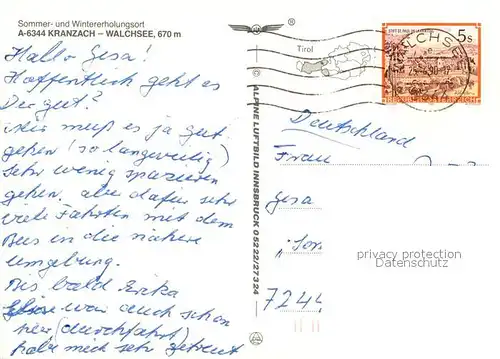 Sommer- und Wintererholungsort
A-6344 KRANZACH – WALCHSEE, 670 m
Hallo Gesa!
Hoffentlich geht es
Dir gut?
Mir muß es ja gut
gehen! (so langweilig)
Sehr wenig spazieren
gehen, aber dafür sehr
viele Fahrten mit dem
Bus in die nähere
Umgebung.
Bis bald Erika
war auch schon
hier (durchfahrt)
habe mich sehr gefreut
ALPINE LUFTBILD INNSBRUCK 05222/27324
Tirol
®
5s
REPUBLIK ÖSTERREICH
WALCHSEE
Deutschland
Frau
Gesa
privacy protection
Datenschutz